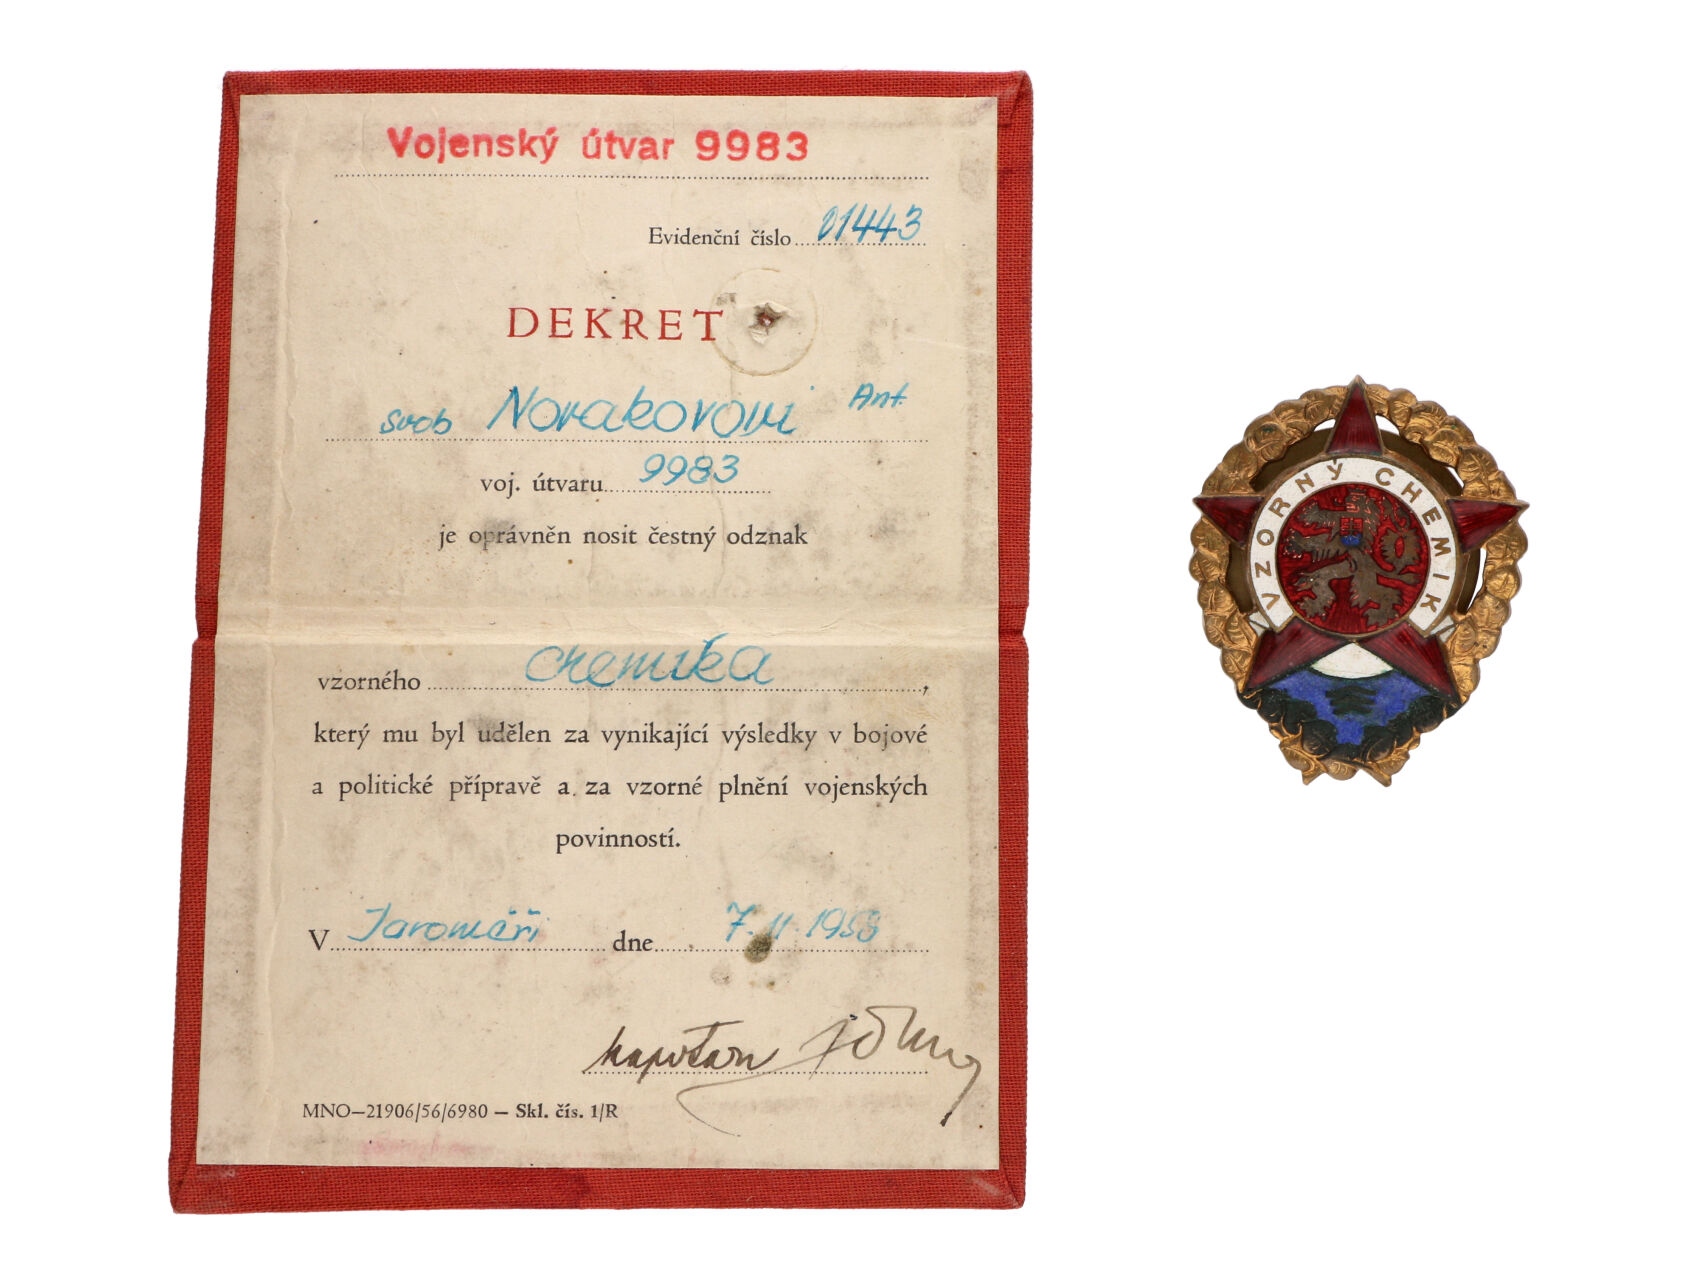 Vojenský útvar 9983
Evidenční číslo 01443
DEKRET
svob Novakovovi Ant.
voj. útvaru 9983
je oprávněn nosit čestný odznak
vzorného chemika,
který mu byl udělen za vynikající výsledky v bojové
a politické přípravě a za vzorné plnění vojenských
povinností.
V Jaroměři dne 7. 11. 1958
kapitan
MNO—21906/56/6980 — Skl. čís. 1/R
VZORNÝ CHEMIK